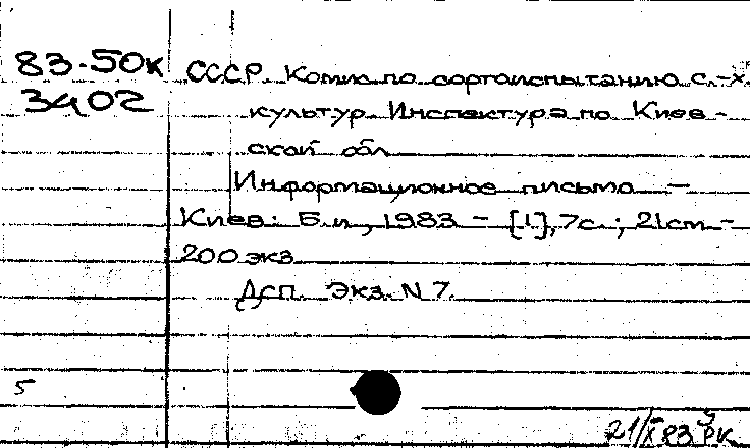 83-50к СССР. Комис. по сортоиспытанию с.-х.
3402 культур. Инспектура по Киев-
ской обл.
Информационное письмо. –
Киев: Б. и., 1983. – [1], 7с.; 21 см –
200 экз.
Дсп. Экз. N 7.
5
21/X 83